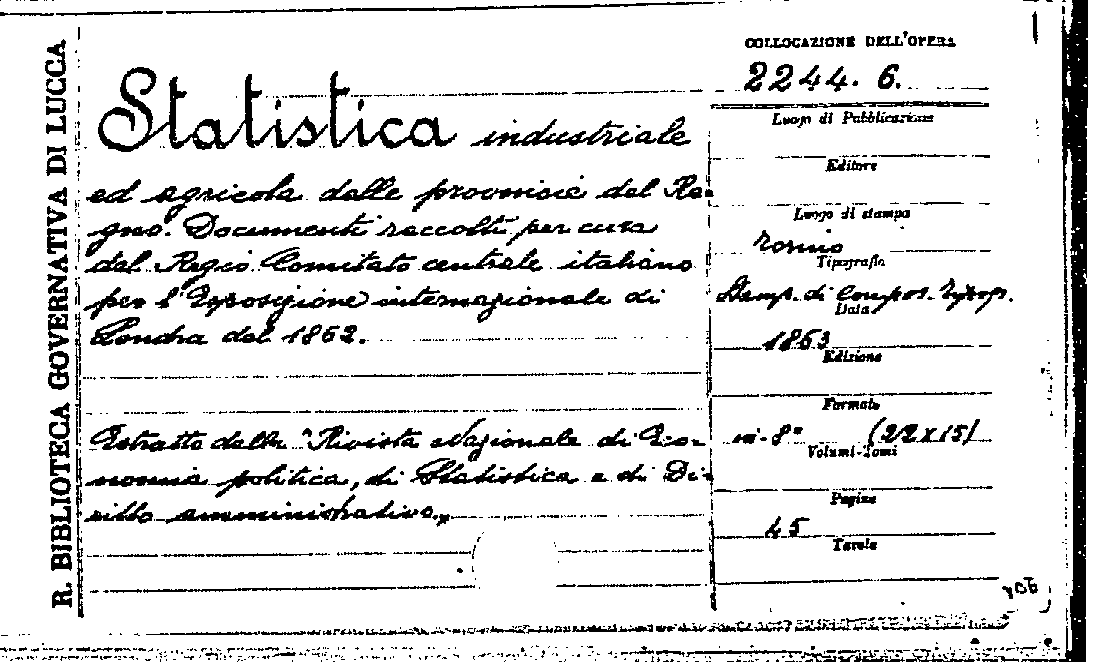 R. BIBLIOTECA GOVERNATIVA DI LUCCA
Statistica industriale
ed agricola delle provincie del Re-
gno. Documenti raccolti per cura
dal Regio Comitato centrale italiano
per l'Esposizione internazionale di
Londra del 1862.
Estratto dalla "Rivista Nazionale di Eco-
nomia politica, di Statistica e di Di-
ritto amministrativo„
COLLOCAZIONE DELL'OPERA
2244. 6.
Luogo di Pubblicazione
Editore
Luogo di stampa
Torino
Tipografia
Stamp. di Compos. Tipog.
Data
1863
Edizione
Formato
in-8° (22x15)
Volumi-Tomi
Pagine
45
Tavole